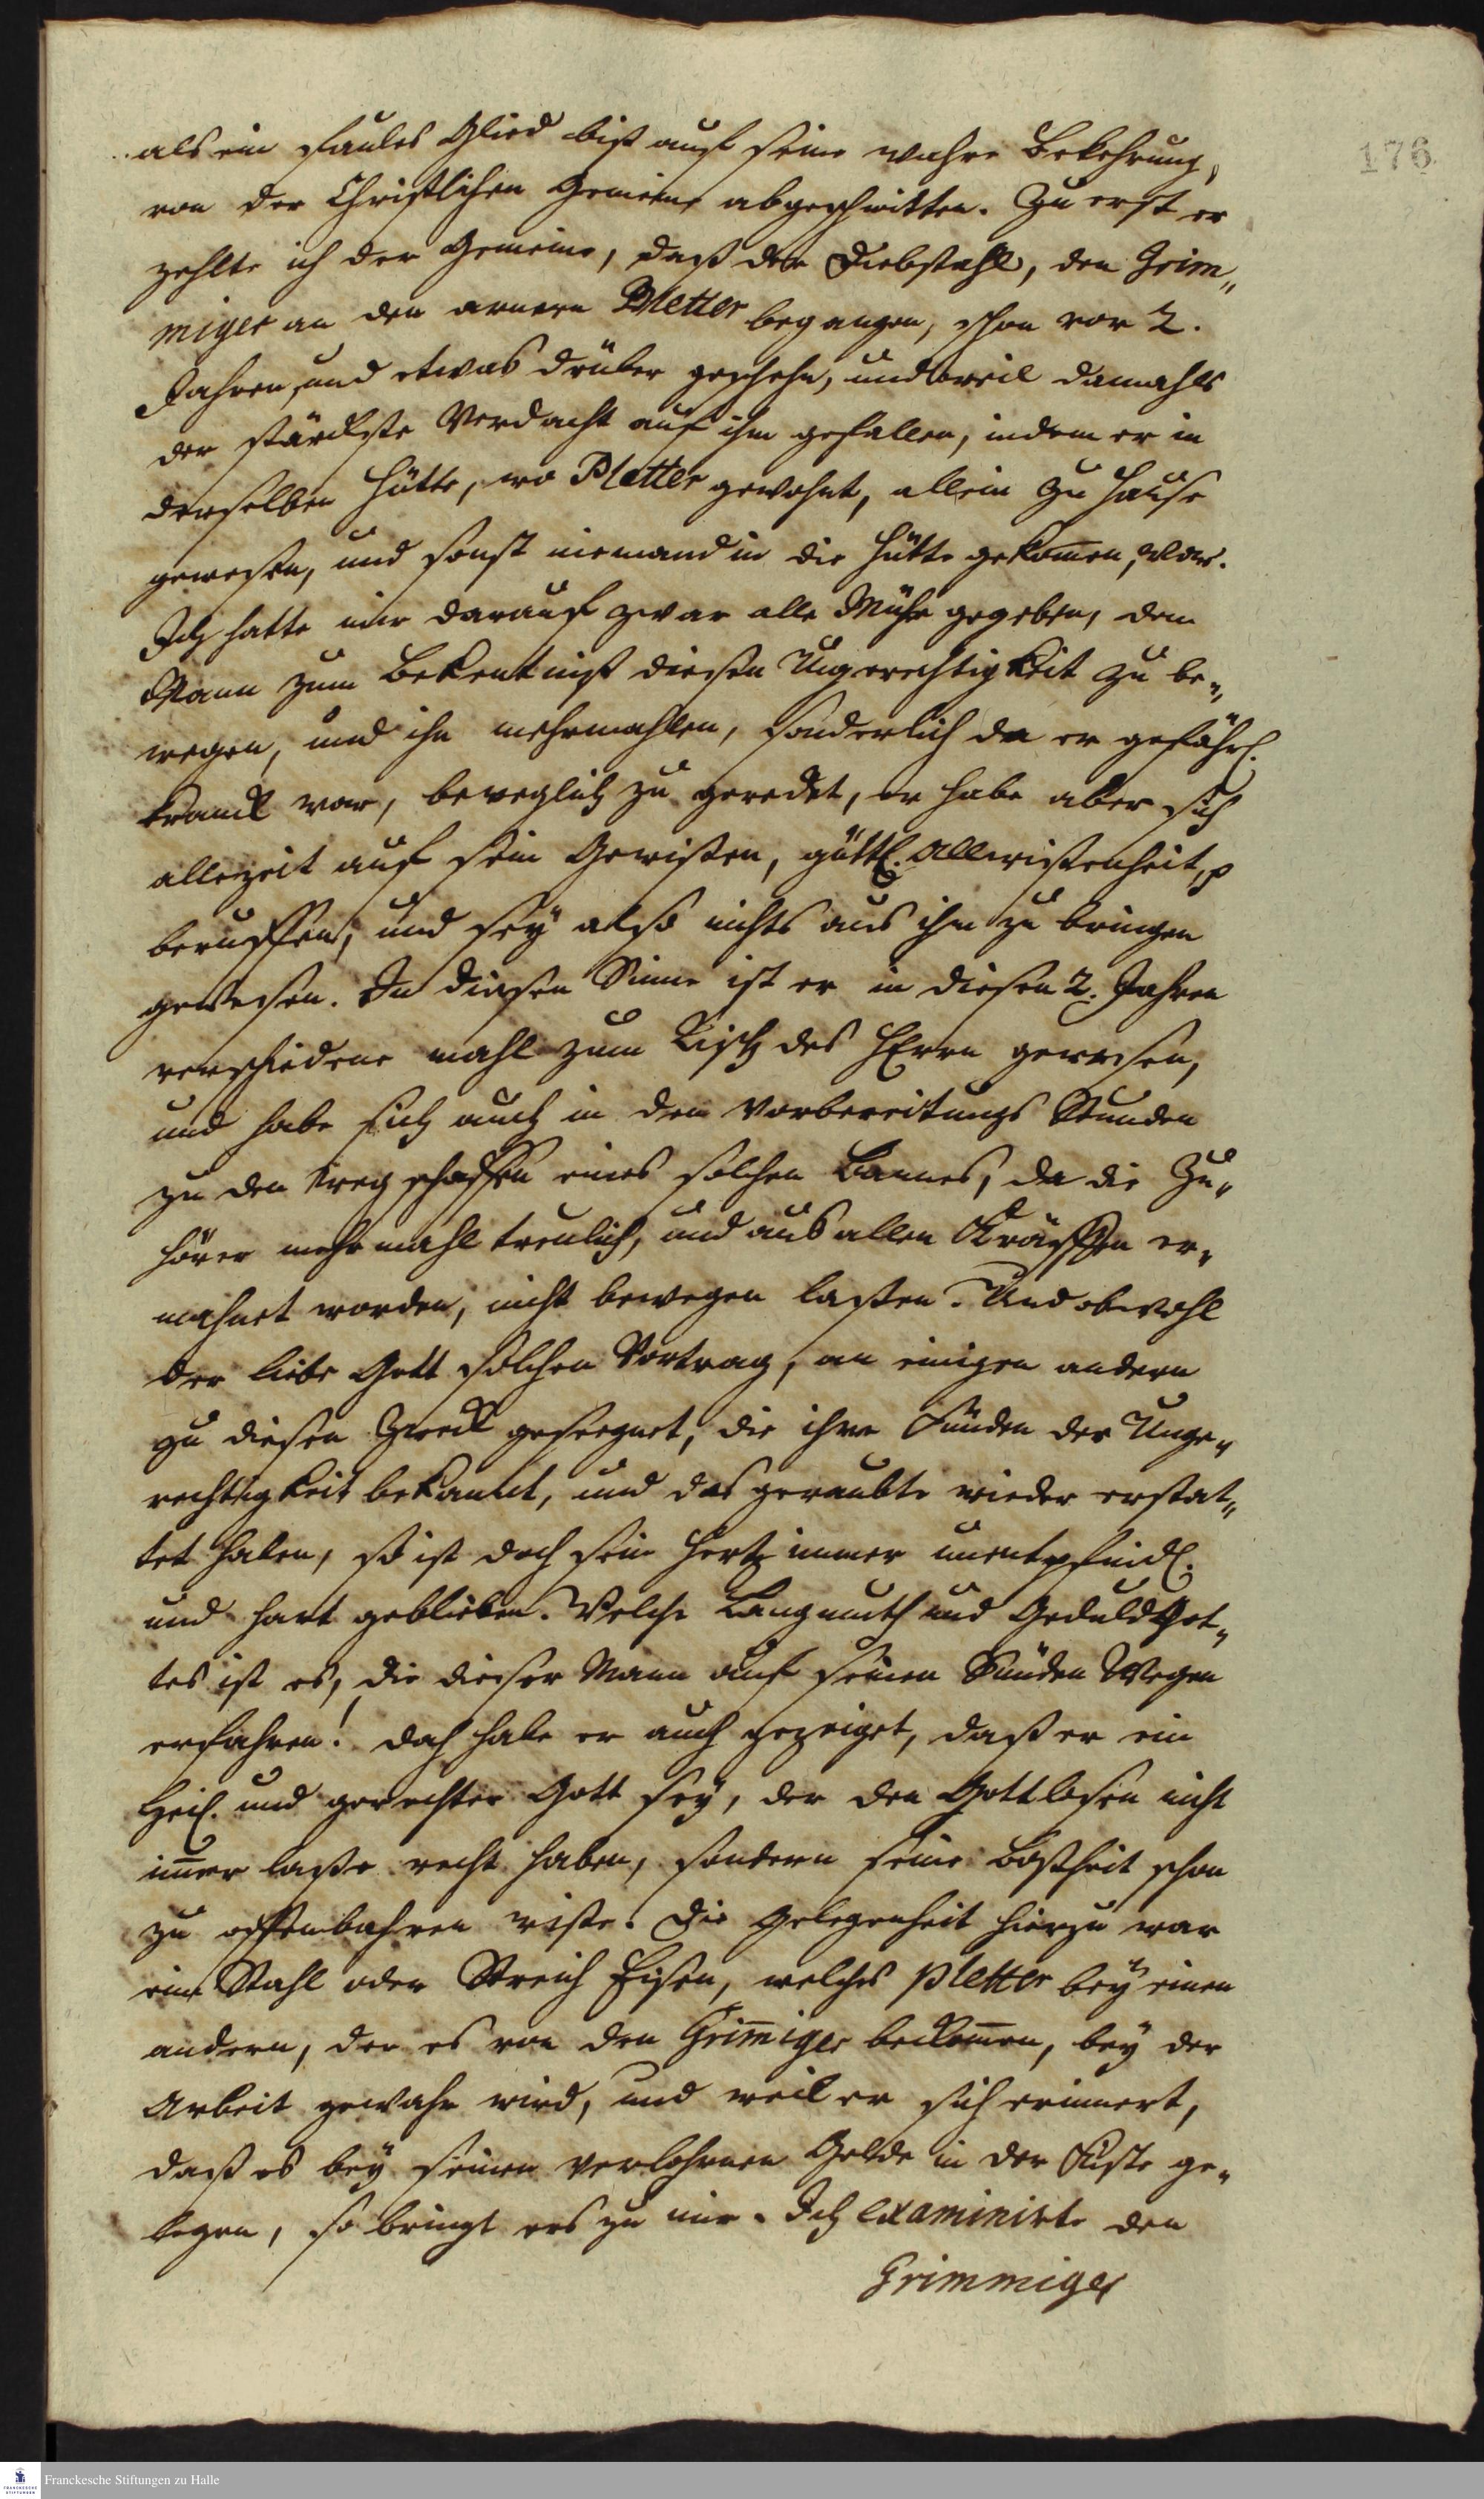 176
als ein faules Glied biß auf seine wahre Bekehrung,
von der Christlichen Gemeine abgeschnitten. Zu erst er
zehlte ich der Gemeine, daß der Diebstahl, den Grim„
miger an den armen Pletter begangen, schon vor 2.
Jahren, und etwas drüber geschehn, und weil damahls
der stärckste Verdacht auf ihn gefallen, indem er in
derselben Hütte, wo Pletter gewohnt, allein zu Hause
gewesen, und sonst niemand in die Hütte gekom̅en, war.
Ich hatte mir darauf zwar alle Mühe gegeben, den
Mann zum Bekentniß dieser Ungerechtigkeit zu be„
wegen, und ihn mehrmahlen, sonderlich da er gefährl.
kranck war, beweglich zu geredet, er habe aber sich
allezeit auf sein Gewißen, göttl. Allwißenheit, p
beruffen, und sey also nichts aus ihm zu bringen
gewesen. In diesen Sinne ist er in diesen 2. Jahren
verschiedene mahl zum Tisch des HErrn gewesen,
und habe sich auch in den Vorbereitungs Stunden
zu den wegschaffen eines solchen Bannes, da die Zu„
hörer mehrmahl treulich, und aus allen Kräfften er„
mahnet worden, nicht bewegen laßen. Und obwohl
der liebe Gott solchen Vortrag, an einigen andern
zu diesen Zweck geseegnet, die ihre Sünden der Unge„
rechtigkeit bekannt, und das geraubte wieder erstat„
tet haben, so ist doch sein Hertz immer unentpfindl.
und hart geblieben. Welche Langmuth und Geduld Got„
tes ist es, die dieser Mann auf seinen Sünden Wegen
erfahren! doch habe er auch gezeiget, daß er ein
Heil. und gerechter Gott sey, der den Gottlosen nicht
im̅er laße recht haben, sondern seine Boßheit schon
zu offenbahren wiße. Die Gelegenheit hierzu war
ein Stahl oder Streich Eisen, welches Pletter bey einen
andern, der es von den Grim̅iger bekom̅en, bey der
Arbeit gewahr wird, und weil er sich erinnert,
daß es bey seinen verlohrnen Gelde in der Kiste ge„
legen, so bringt ers zu mir. Ich examinirte den
Grimmiger
Franckesche Stiftungen zu Halle